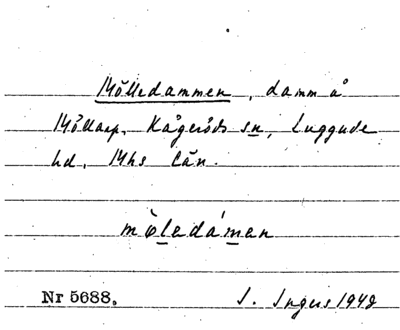 Mölledammen, damm å
Möllarp, Kågeröds sn, Luggude
hd, Mhs län.
mö̀ledámen
Nr 5688. I. Ingers 1948